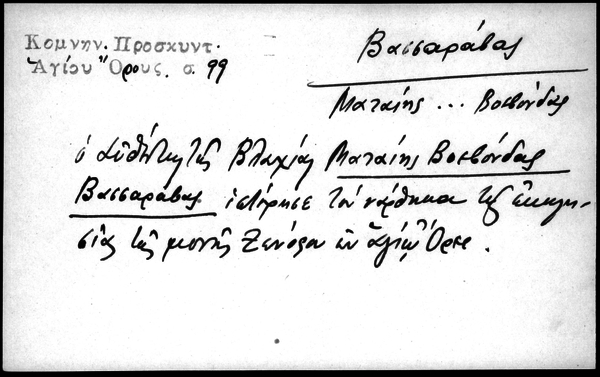 Κομνην. Προσκυντ.
Ἁγίου Ὄρους. σ. 99
Βασσαράβας
Ματαίης ... Βοεβόνδας
ὁ αὐθέντης τῆς Βλαχίας Ματαίης Βοεβόνδας
Βασσαράβας ἱστόρησε τὸν νάρθηκα τῆς ἐκκλη-
σίας τῆς μονῆς Ξενόφου ἐν ἁγίῳ Ὄρει.